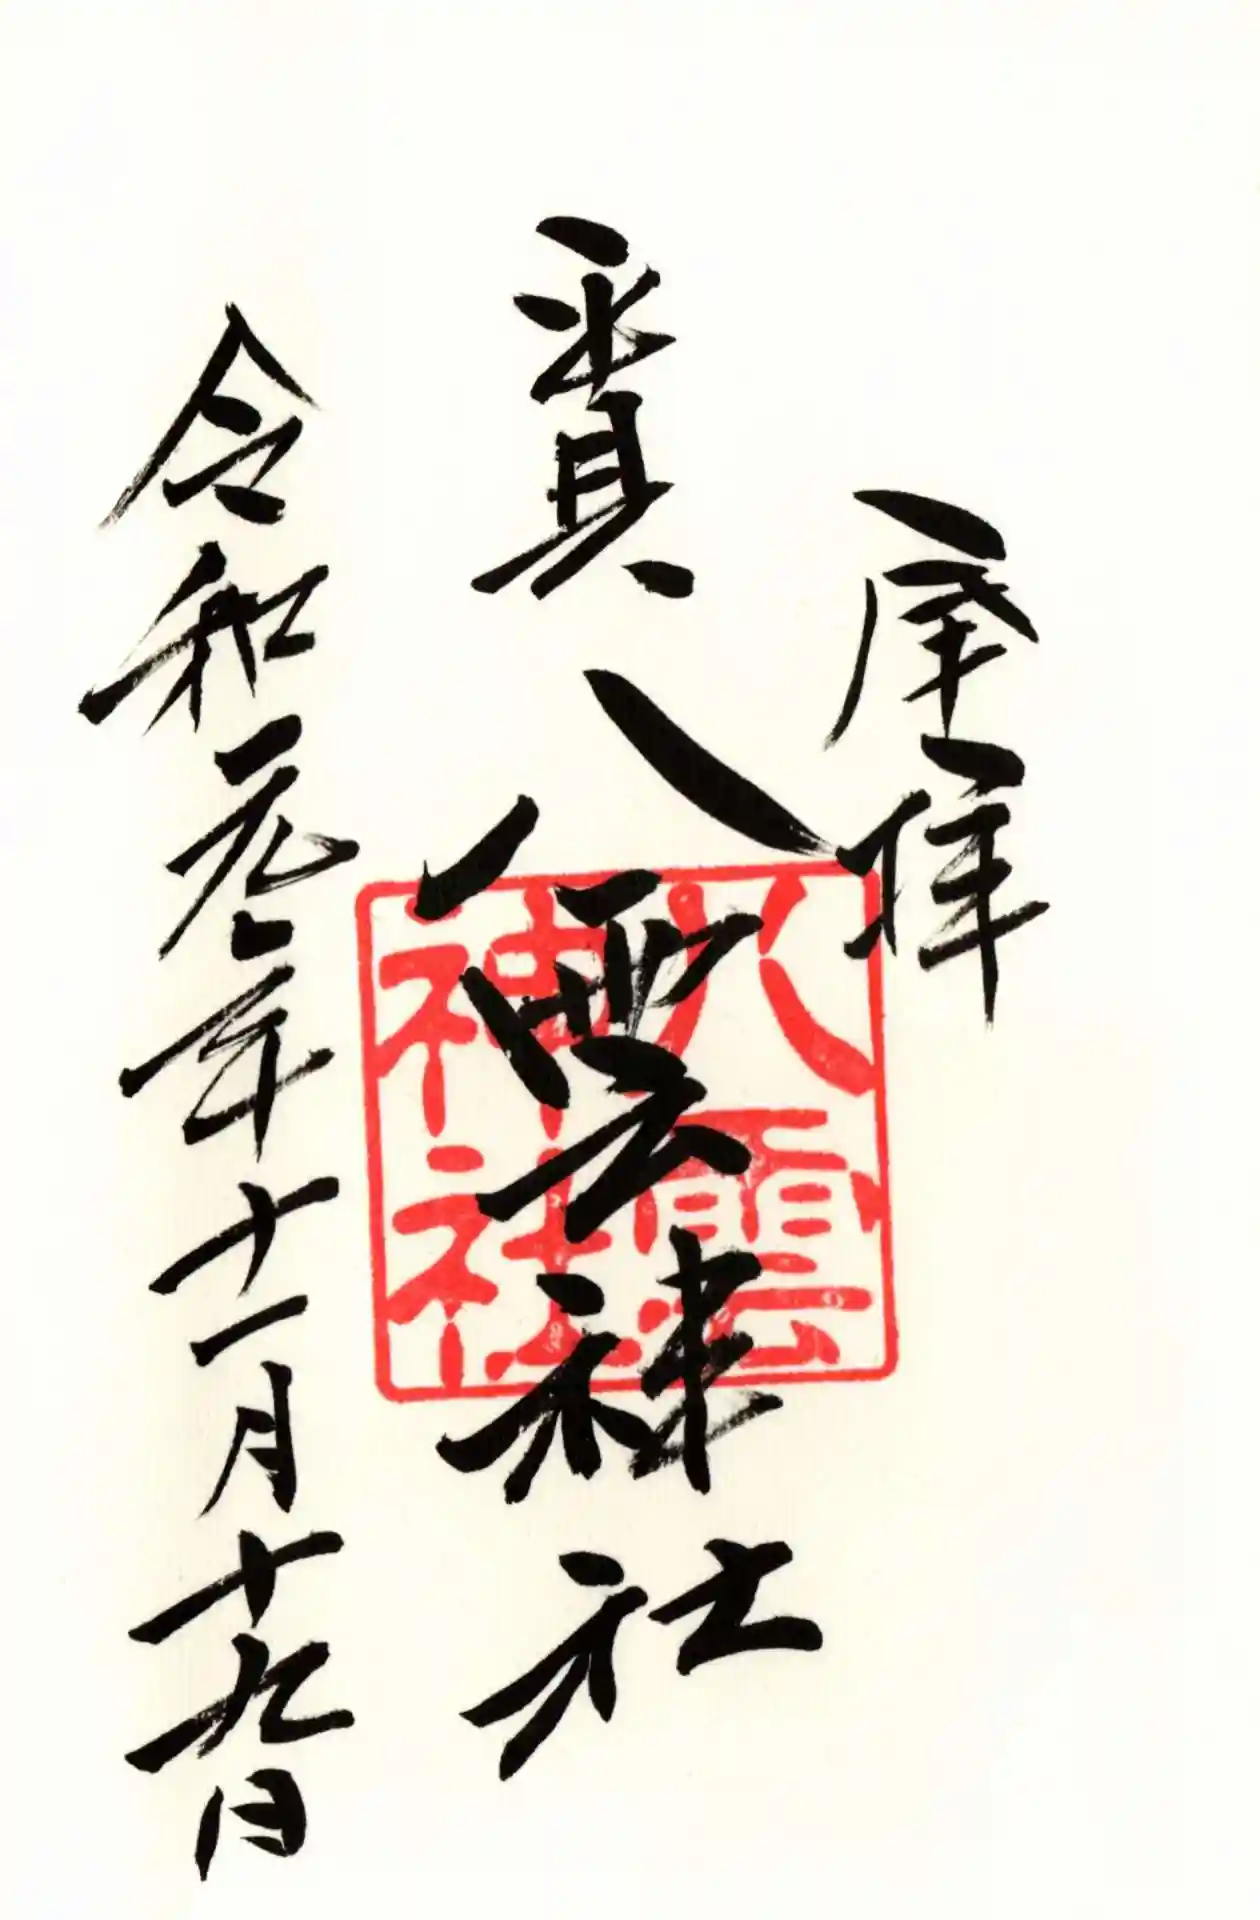 拝
八雲神社
令和元年十一月十九日
八雲
神社